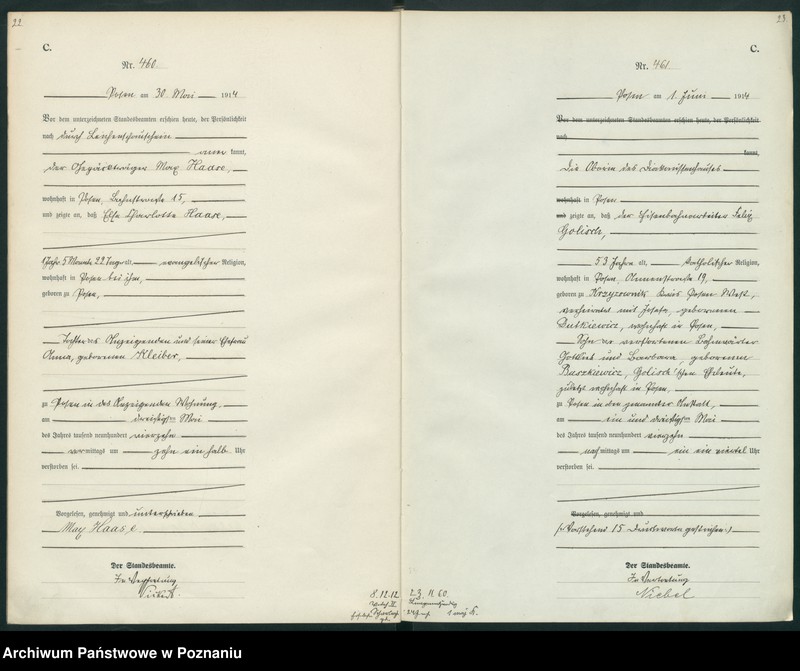 22
C.
Nr. 460.
Posen am 30. Mai 1914
Vor dem unterzeichneten Standesbeamten erschien heute, der Persönlichkeit
nach durch Leichenschauschein
aner kannt,
der Max Haase,
wohnhaft in Posen, 15,
und zeigte an, daß Else Charlotte Haase,
1 Jahr 5 Monate 22 Tage alt, evangelischer Religion,
wohnhaft in Posen bei ihm,
geboren zu Posen,
Tochter des Anzeigenden und seiner Ehefrau
Anna, geborenen Kleiber,
zu Posen in des Anzeigenden Wohnung,
am dreißigsten Mai
des Jahres tausend neunhundert vierzehn
vormittags um zehn ein halb Uhr
verstorben sei.
Vorgelesen, genehmigt und unterschrieben
Max Haase
Der Standesbeamte.
In Vertretung
8.12.12
23
C.
Nr. 461.
Posen am 1. Juni 1914
Vor dem unterzeichneten Standesbeamten erschien heute, der Persönlichkeit
nach
kannt,
Die Oberin des Diakonissenhauses
wohnhaft in Posen
und zeigte an, daß der Eisenbahnarbeiter Felix
Golisch,
53 Jahre alt, katholischer Religion,
wohnhaft in Posen, 19,
geboren zu Krzyzownik Kreis Posen West,
verheiratet mit Josefa, geborenen
Dutkiewicz, wohnhaft in Posen,
Sohn der verstorbenen Bahnwärter
und Barbara, geborenen
Ruszkiewicz, Golisch'schen Eheleute,
zuletzt wohnhaft in Posen,
zu Posen in der genannten Anstalt,
am ein und dreißigsten Mai
des Jahres tausend neunhundert vierzehn
nachmittags um ein ein viertel Uhr
verstorben sei.
Vorgelesen, genehmigt und
(Vorstehend 15 Druckworte gestrichen.)
Der Standesbeamte.
In Vertretung
Niebel
23. 11. 60.
Archiwum Państwowe w Poznaniu